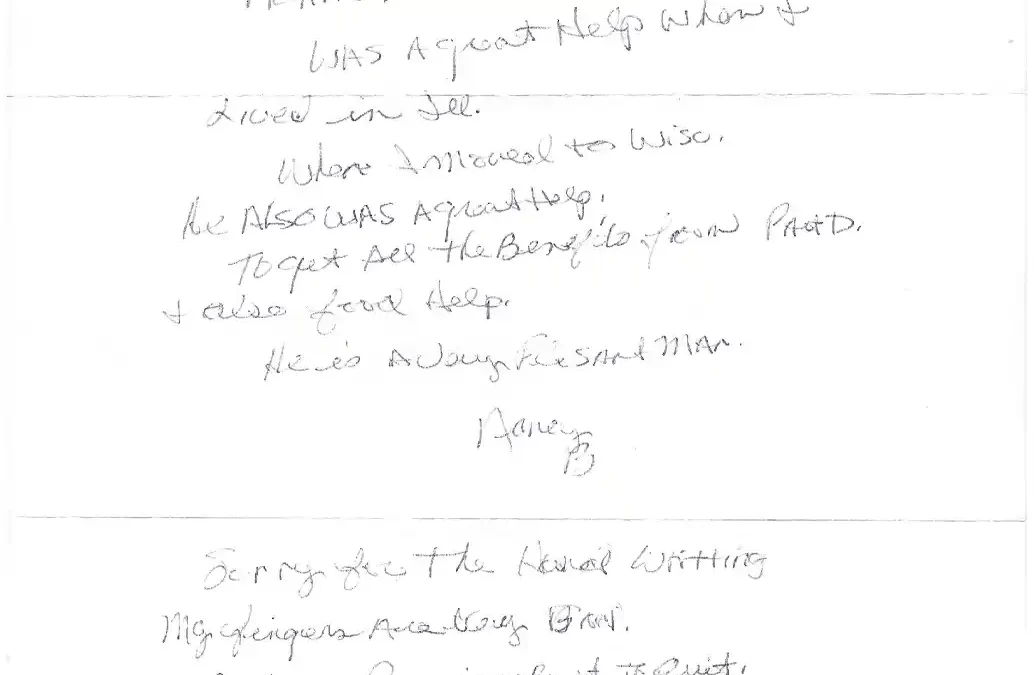 WAS A great Help When I
Lived in Ill.
When I Moved to Wisc.
He ALSO WAS A great Help.
To get All the Benefits from Part D.
+ also food Help.
He is A Very MAN.
Nancy
B
Sorry for the Hand Writting
My fingers Are Very
it To Quit.